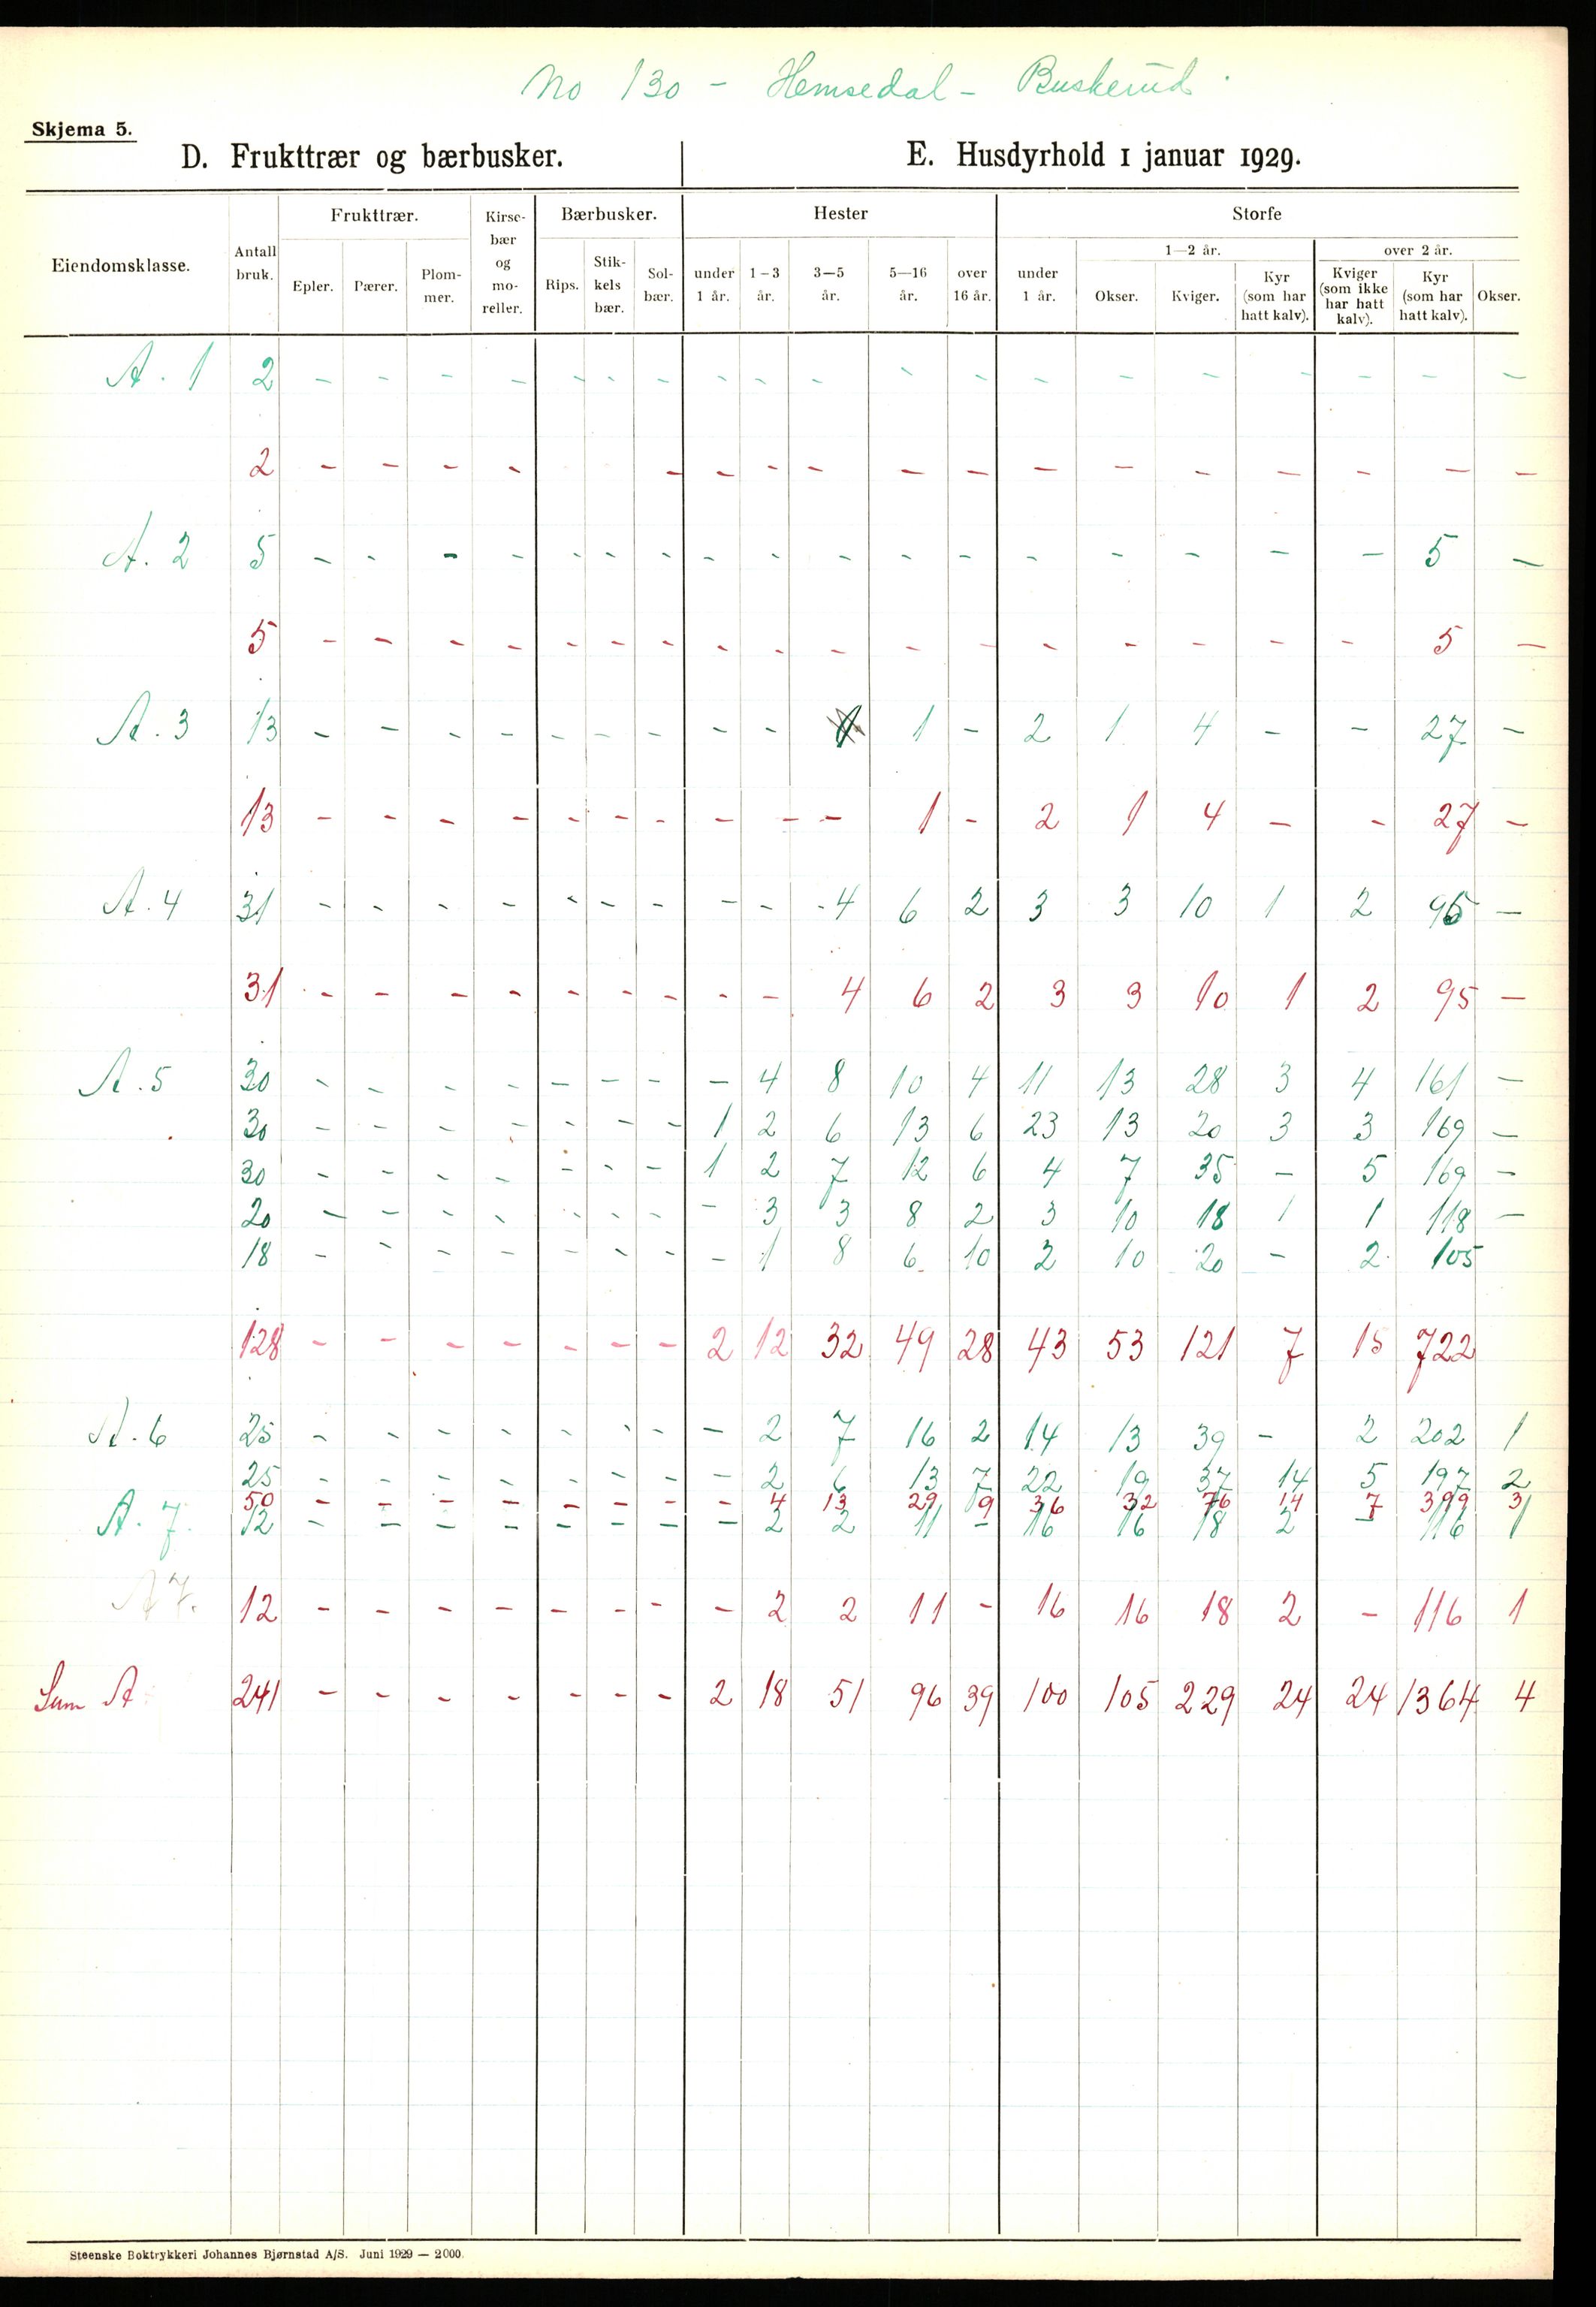 No 130 - Hemsedal - Buskerud.
Skjema 5.
D. Frukttrær og bærbusker. E. Husdyrhold 1 januar 1929.
Eiendomsklasse. Antall bruk. Frukttrær. Epler. Pærer. Plom-mer. Kirse-bær og mo-reller. Bærbusker. Rips. Stik-kels bær. Sol-bær. Hester under 1 år. 1-3 år. 3-5 år. 5-16 år. over 16 år. Storfe under 1 år. 1-2 år. Okser. Kviger. Kyr (som har hatt kalv). over 2 år. Kviger (som ikke har hatt kalv). Kyr (som har hatt kalv). Okser.
A. 1 2 - - - - - - - - - - - - - - - - - - -
2 - - - - - - - - - - - - - - - - -
A. 2 5 - - - - - - - - - - - - - - - - - 5 -
5 - - - - - - - - - - - - - - - - - 5 -
A. 3 13 - - - - - - - - - 1 - 2 1 4 - - 27 -
13 - - - - - - - - - - 1 - 2 1 4 - - 27 -
A. 4 31 - - - - - - - - - 4 6 2 3 3 10 1 2 95 -
31 - - - - - - - - - 4 6 2 3 3 10 1 2 95 -
A. 5 30 - - - - - - - - 4 8 10 4 11 13 28 3 4 161 -
30 - - - - - - - 1 2 6 13 6 23 13 20 3 3 169 -
30 - - - - - - - 1 2 7 12 6 4 7 35 - 5 169 -
20 - - - - - - - - 3 3 8 2 3 10 18 1 1 118 -
18 - - - - - - - - 1 8 6 10 2 10 20 - 2 105
128 - - - - - - - 2 12 32 49 28 43 53 121 7 15 722
A. 6 25 - - - - - - - - 2 7 16 2 14 13 39 - 2 202 1
25 - - - - - - - - 2 6 13 7 22 19 37 14 5 197 2
50 - - - - - - - - 4 13 29 9 36 32 76 14 7 399 3
A. 7. 12 - - - - - - - - 2 2 11 - 16 16 18 2 - 116 1
A 7. 12 - - - - - - - - 2 2 11 - 16 16 18 2 - 116 1
Sum A 241 - - - - - - - 2 18 51 96 39 100 105 229 24 24 1364 4
Steenske Boktrykkeri Johannes Bjørnstad A/S. Juni 1929 — 2000.